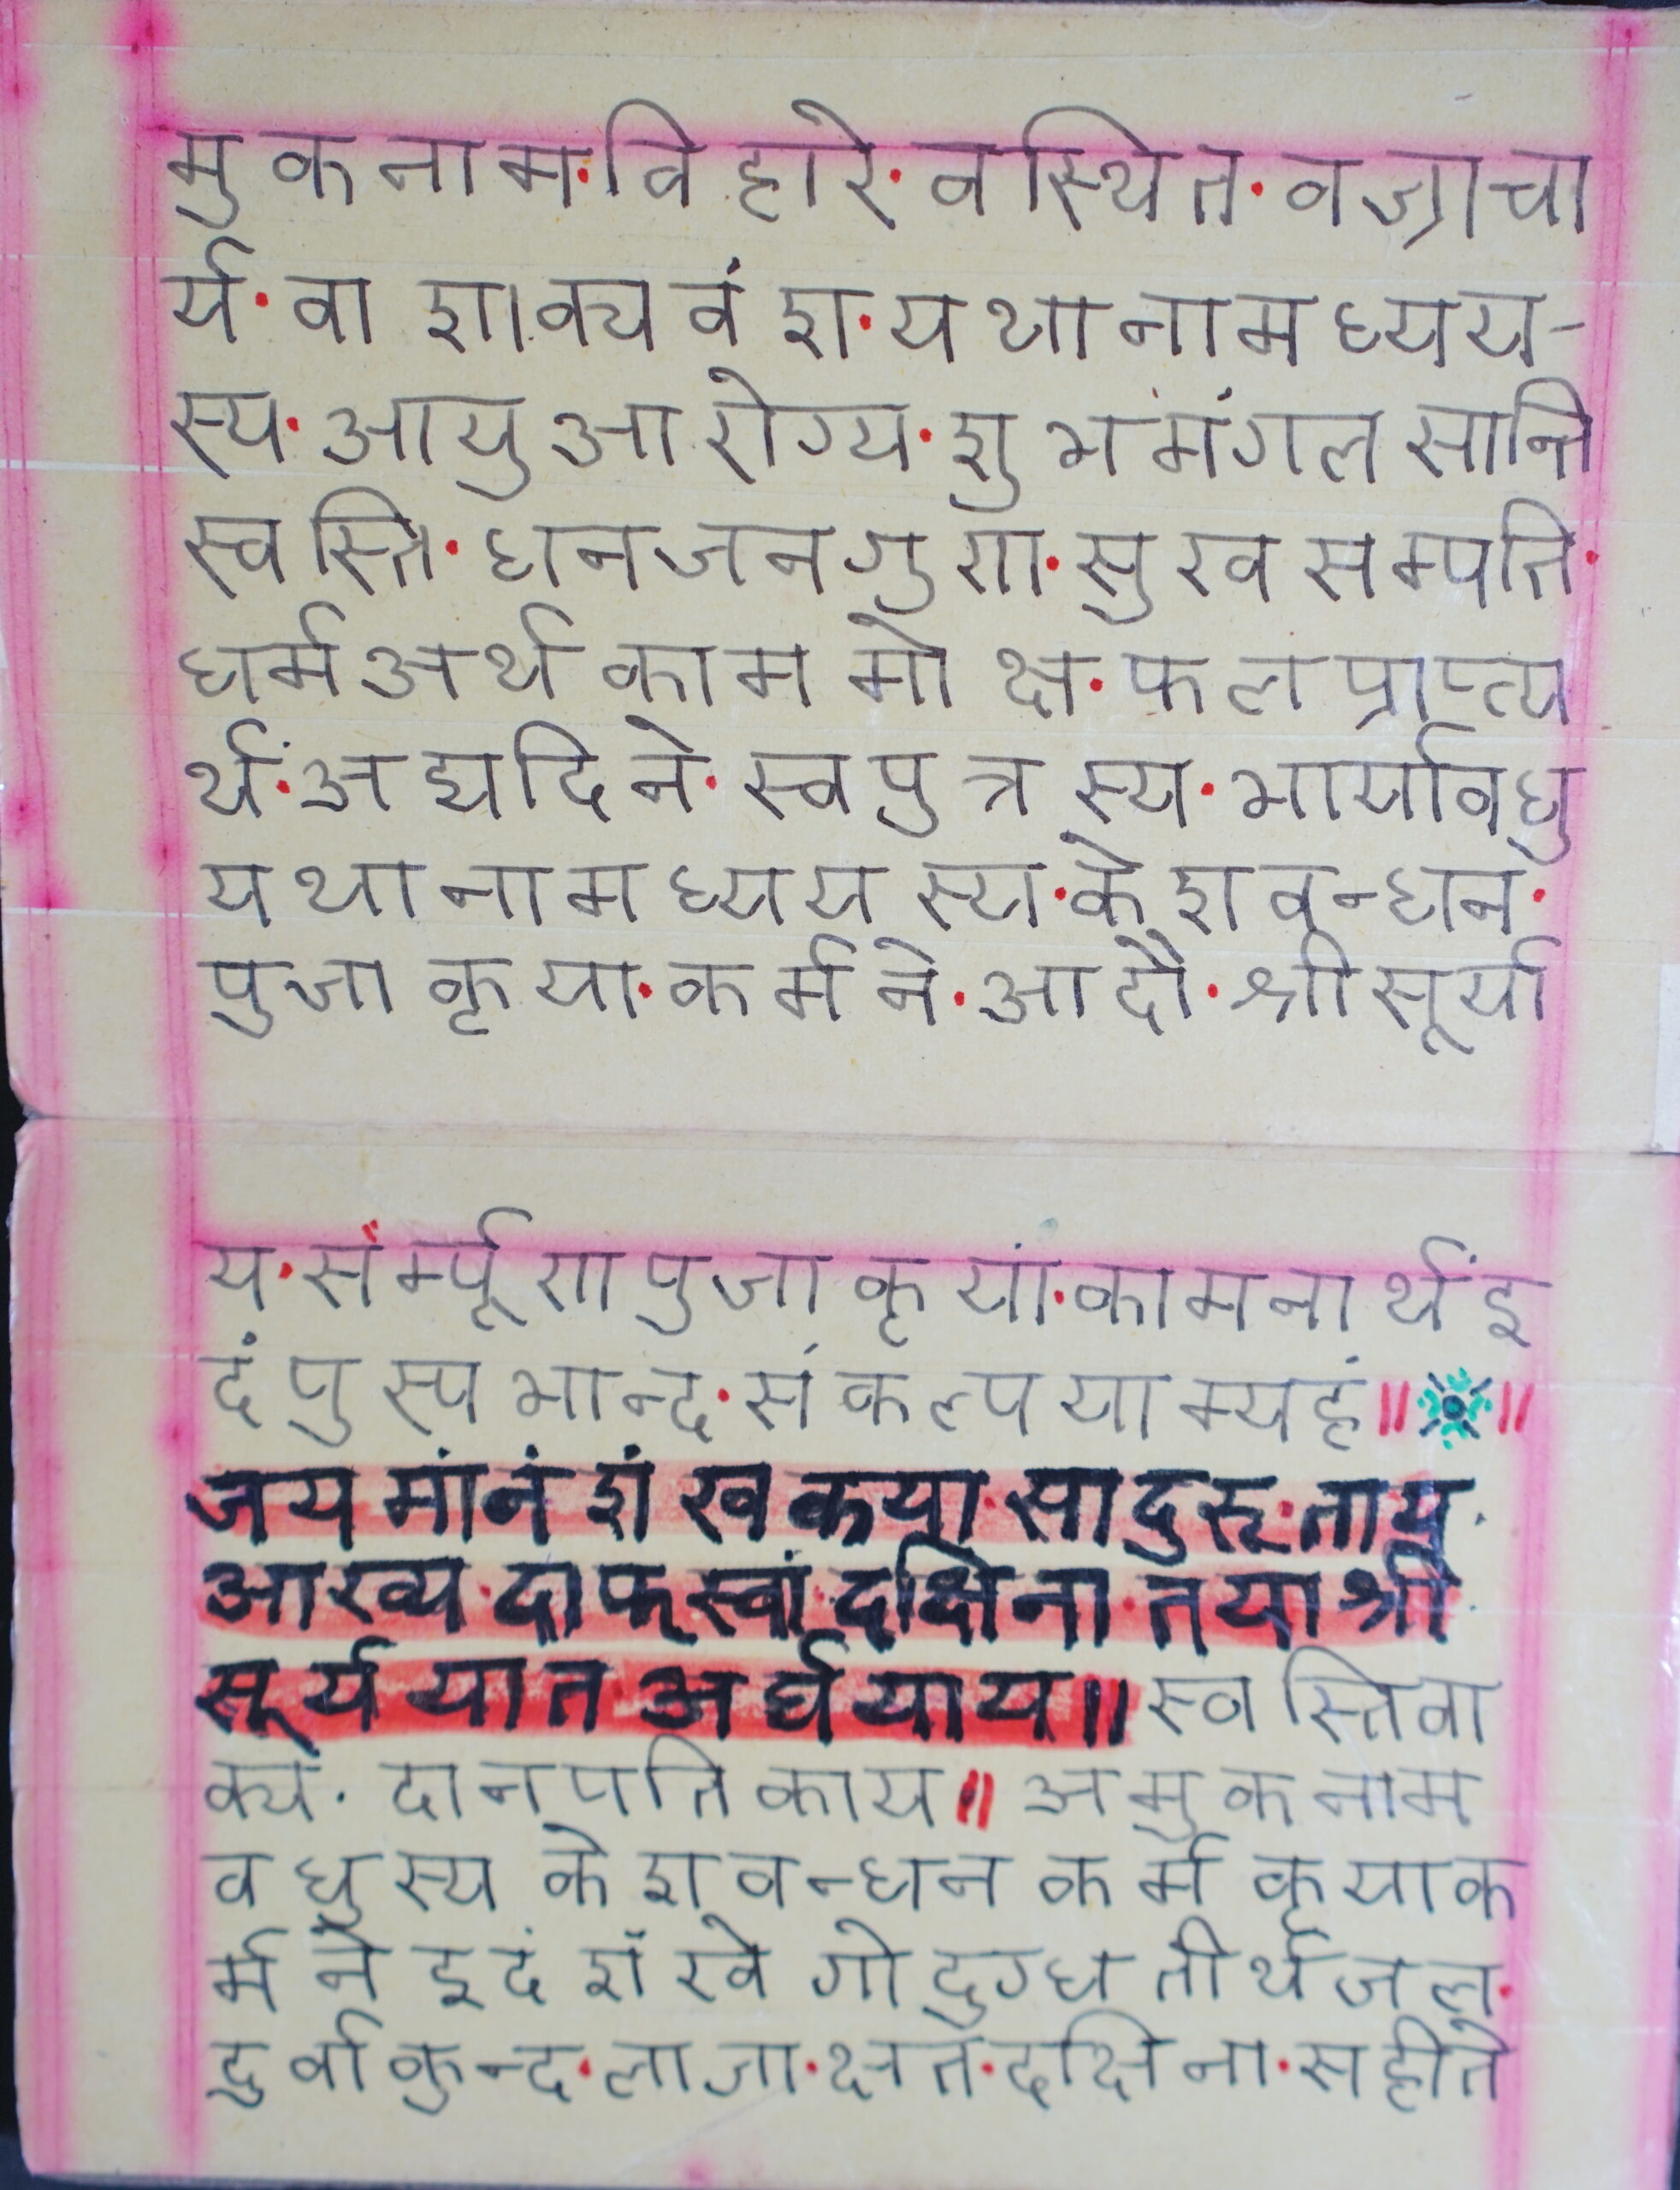 मुकनाम·विहारे·वस्थित·वज्राचा
र्य·वा शाक्यवंश·यथानामध्यय-
स्य·आयुआरोग्य·शुभमंगल सान्ति
स्वस्ति·धनजनगुण·सुखसम्पति·
धर्मअर्थ काममोक्ष·फलप्राप्त्य
र्थं·अद्यदिने·स्वपुत्रस्य·भार्यावधु
यथानामध्ययस्य·केशवन्धन·
पुजाकृया·कर्मने·आदौ·श्रीसूर्या
य·संर्म्पूणपुजाकृयां·कामनार्थंइ
दंपुस्पभान्द·संकल्पयाम्यहं॥ ॥
जयमांनं शंखकया·सादुरू·ताय·
आख्य·दाफस्वां·दक्षिना·तयाश्री
सूर्ययात अर्घयाय॥ स्वस्तिवा
क्य· दानपतिकाय॥ अमुकनाम
वधुस्य केशवन्धन कर्म कृयाक
र्मने इदं शंखे गोदुग्ध तीर्थजल·
दुर्वाकुन्द·लाजा·क्षत·दक्षिना·सहीत